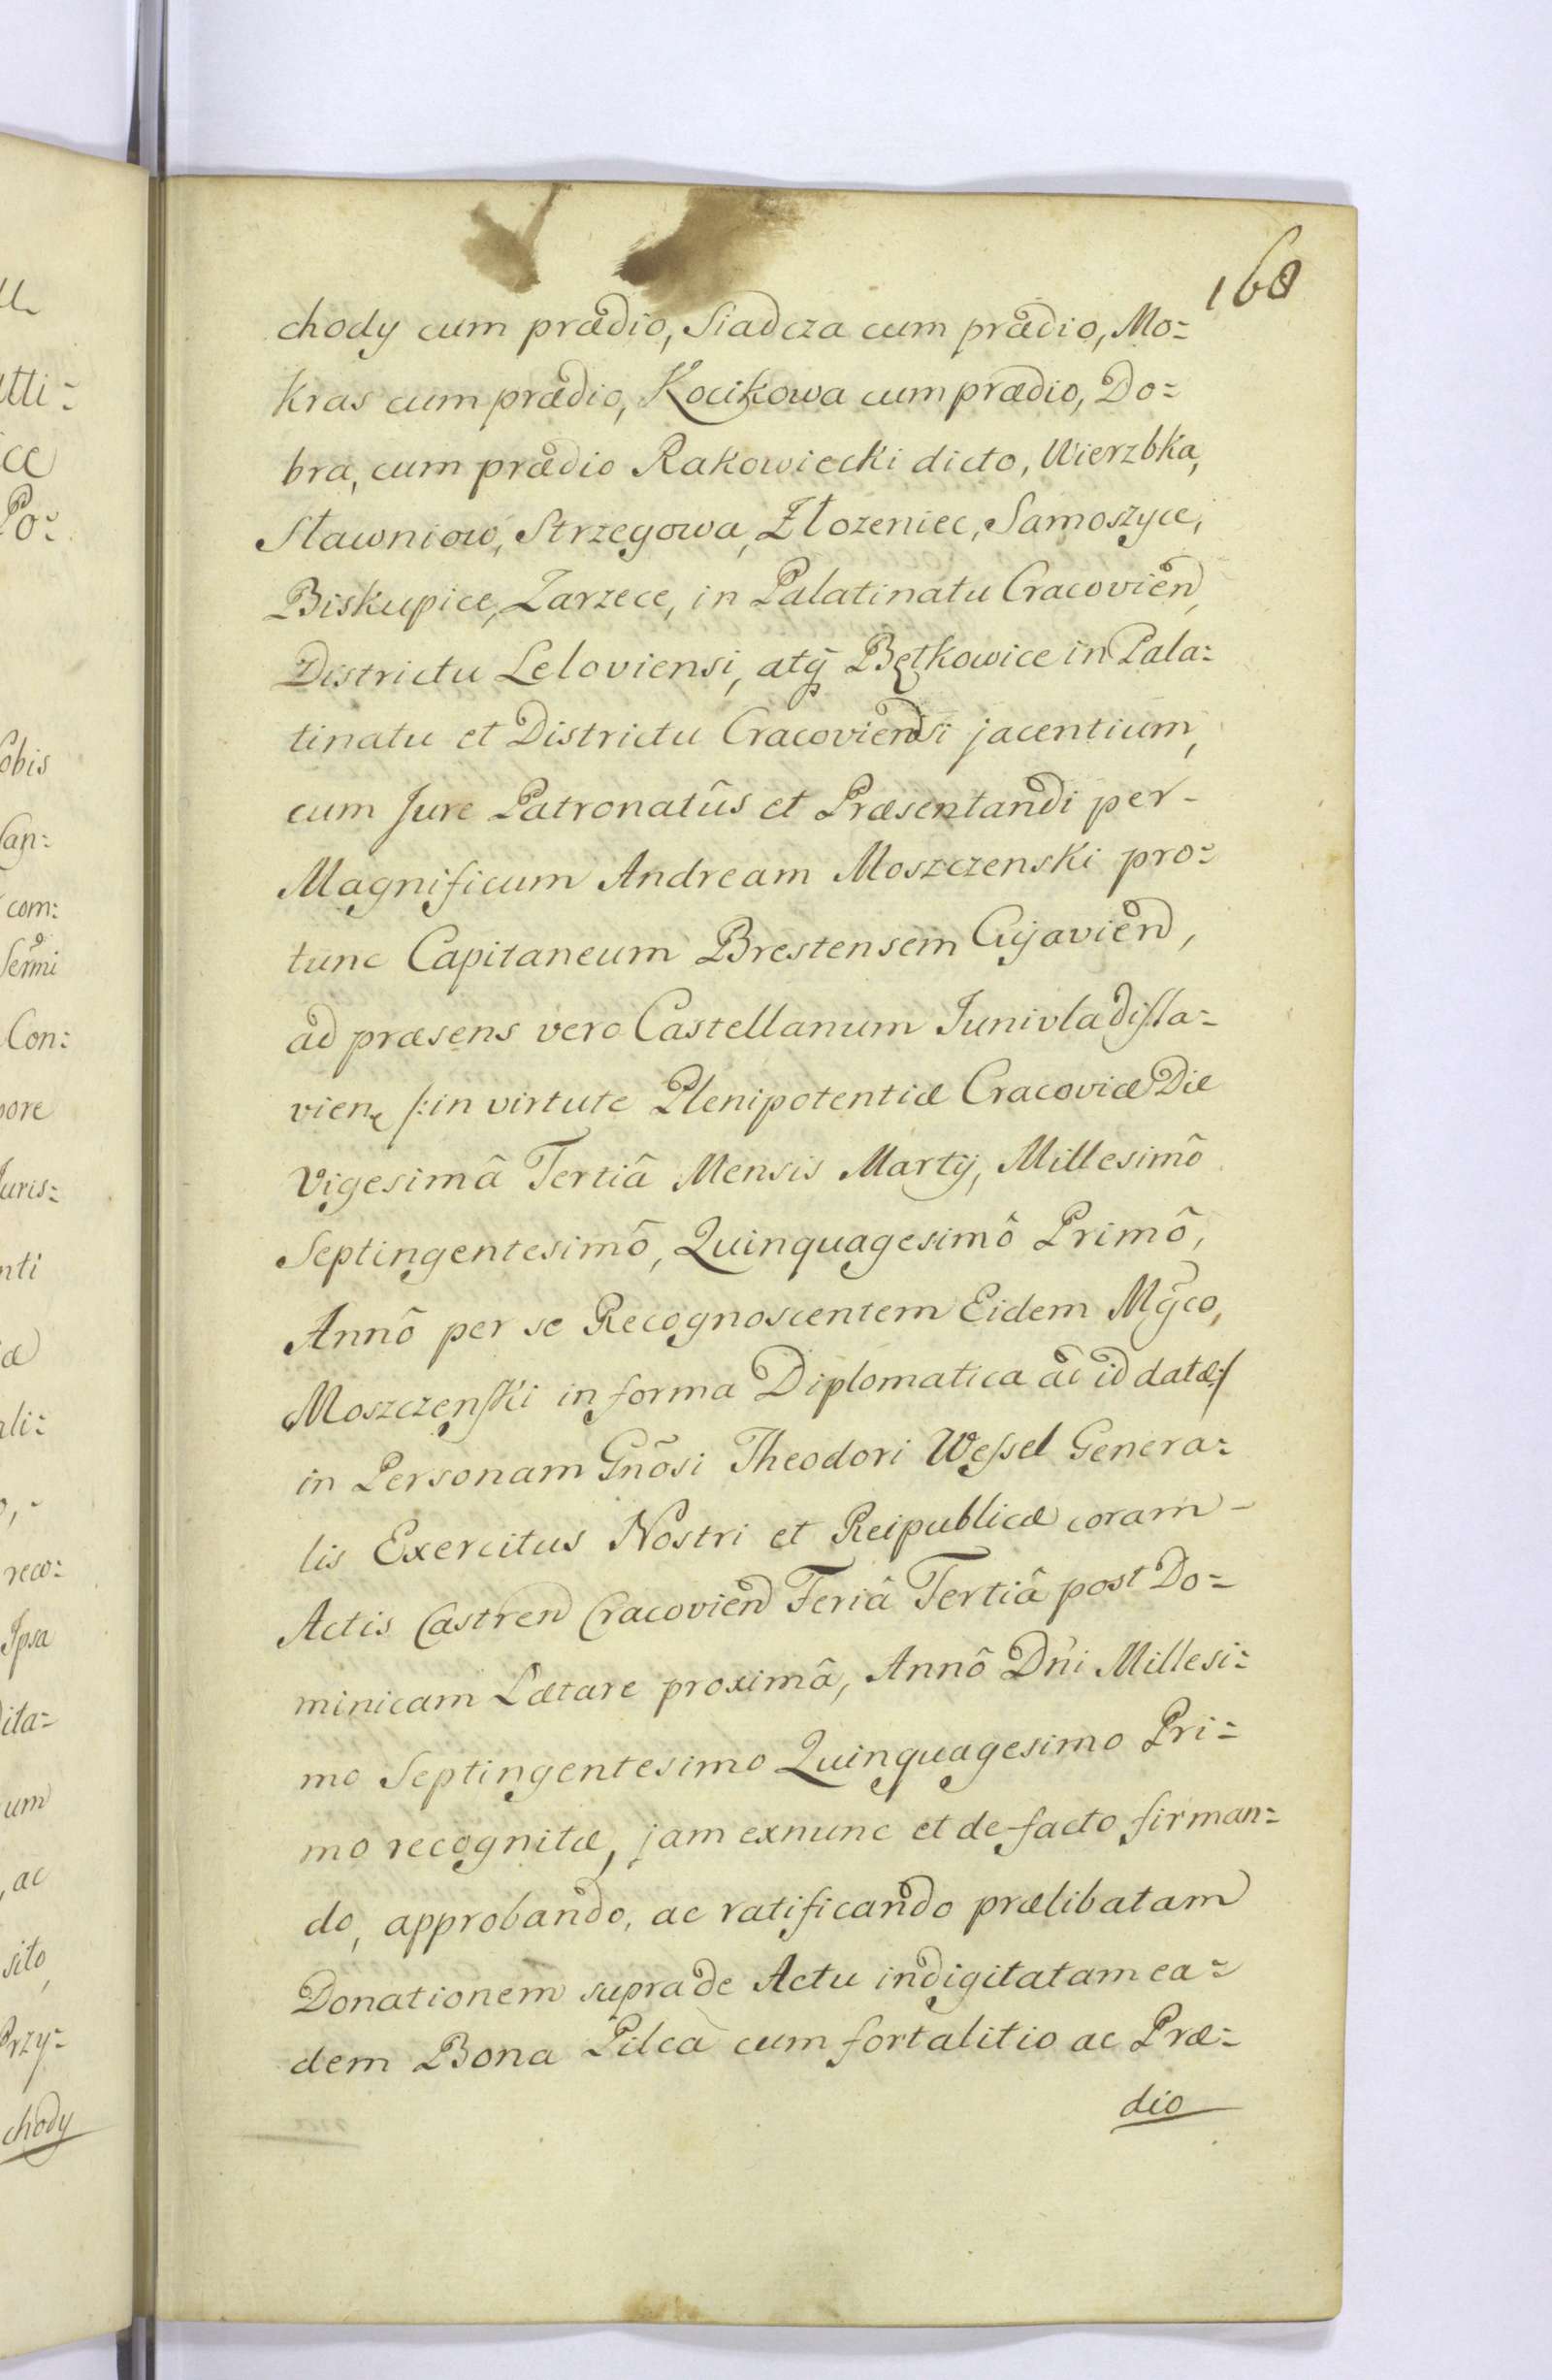 160
chody cum prædio, Siadcza cum prædio, Mo=
kras cum prædio, Kocikowa cum prædio, Do=
bra, cum prædio Rakowiecki dicto, Wierzbka,
Sławniow, Strzegowa, Złozeniec, Samoszyce,
Biskupice, Zarzece, in Palatinatu Cracovien̄,
Districtu Leloviensi, atq̄ Bętkowice in Pala=
tinatu et Districtu Cracoviensi jacentium,
cum Jure Patronatûs et Præsentandi per-
Magnificum Andream Moszczenski pro=
tunc Capitaneum Brestensem Cujavien̄,
ad præsens vero Castellanum Junivladisla=
vien, /:in virtute Plenipotentiæ Cracoviæ Die
Vigesimâ Tertiâ Mensis Martij, Millesimô
Septingentesimô, Quinquagesimô Primô,
Annô per se Recognoscentem Eidem Mg̃co,
Moszczenski in forma Diplomatica ac id datæ:/
in Personam Gñosi Theodori Wessel Genera=
lis Exercitus Nostri et Reipublicæ coram-
Actis Castren̄ Cracovien̄ Feriâ Tertiâ post Do=
minicam Lætare proximâ, Annô Dn̄i Millesi=
mo Septingentesimo Quinquagesimo Pri=
mo recognitæ, jam exnunc et de facto firman=
do, approbando, ac ratificando prælibatam
Donationem supra de Actu indigitatam ea=
dem Bona Pilca cum fortalitio ac Præ=
dio